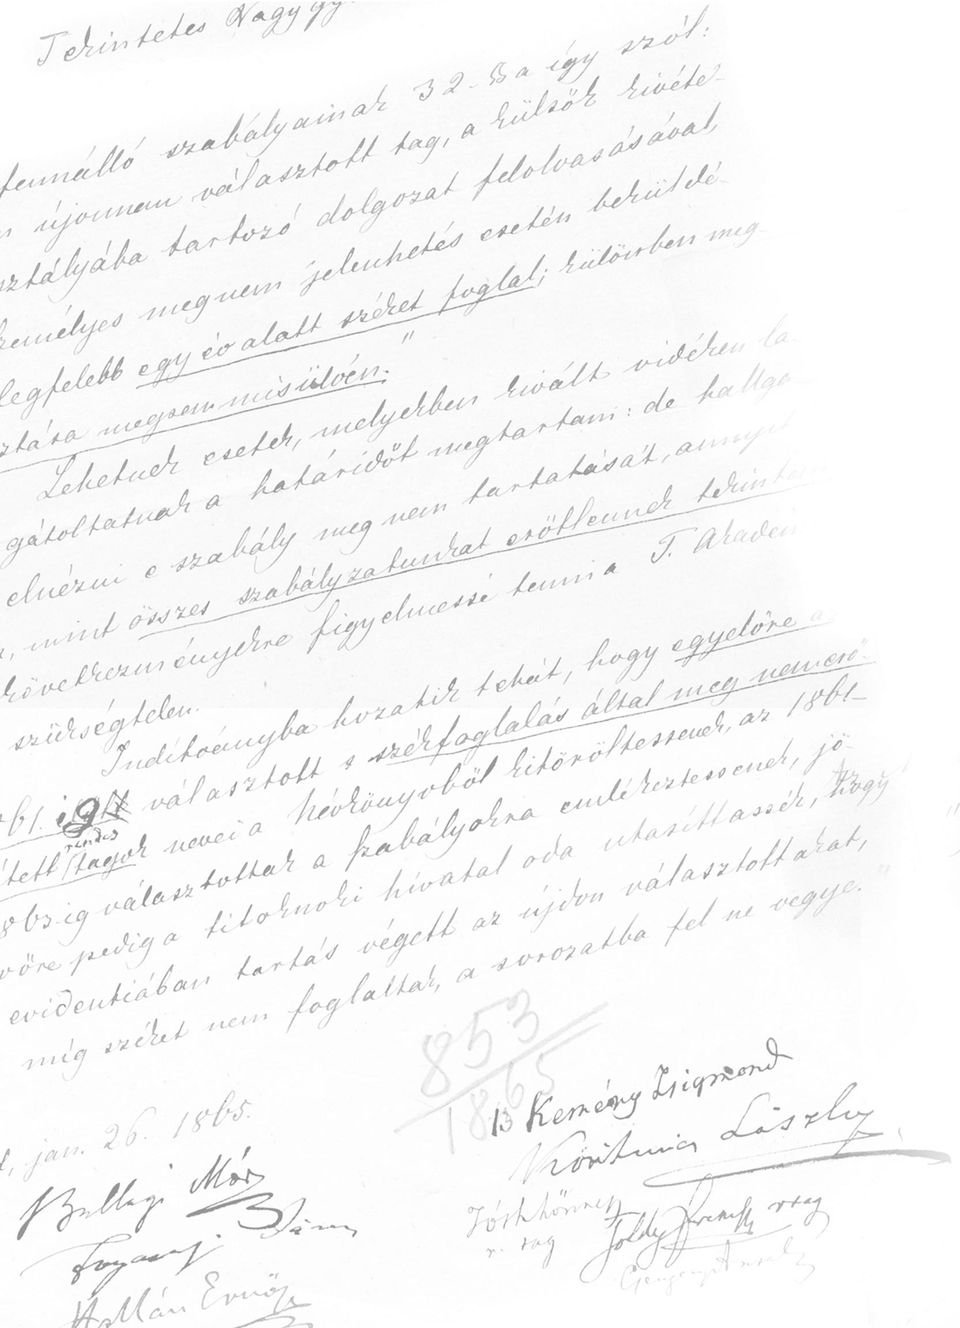 Tekintetes Nagygy
fennálló szabályainak 32-§a így szól:
újonnan választott tag, a külsők kivéte-
sztályába tartozó dolgozat felolvasásával,
személyes meg nem jelenhetés esetén beküldé-
legfelebb egy év alatt széket foglal; különben meg-
sztása megsemmisülvén."
Lehetnek esetek, melyekben kivált vidéken la-
gátoltatnak a határidőt megtartani: de hallga-
elnézni e szabály meg nem tartatását, annyit
, mint összes szabályzatunkat erőtlennek tekinte
következményekre figyelmessé tenni a T. Akadem
szükségtelen.
Indítványba hozatik tehát, hogy egyelőre a
61. választott s székfoglalás által meg nem erő-
ített rendes tagok nevei a Névkönyvből kitöröltessenek, az 1861-
863-ig választottak a szabályokra emlékeztessenek, jö-
vőre pedig a titoknoki hivatal oda utasíttassék, hogy
evidentiában tartás végett az újdon választottakat,
míg széket nem foglaltak, a sorozatba fel ne vegye."
853
1865
, jan. 26. 1865.
B Kemény Zsigmond
Ballagi Mór
László
Toldy Ferencz r. tag
r. tag
Hollán Ernő